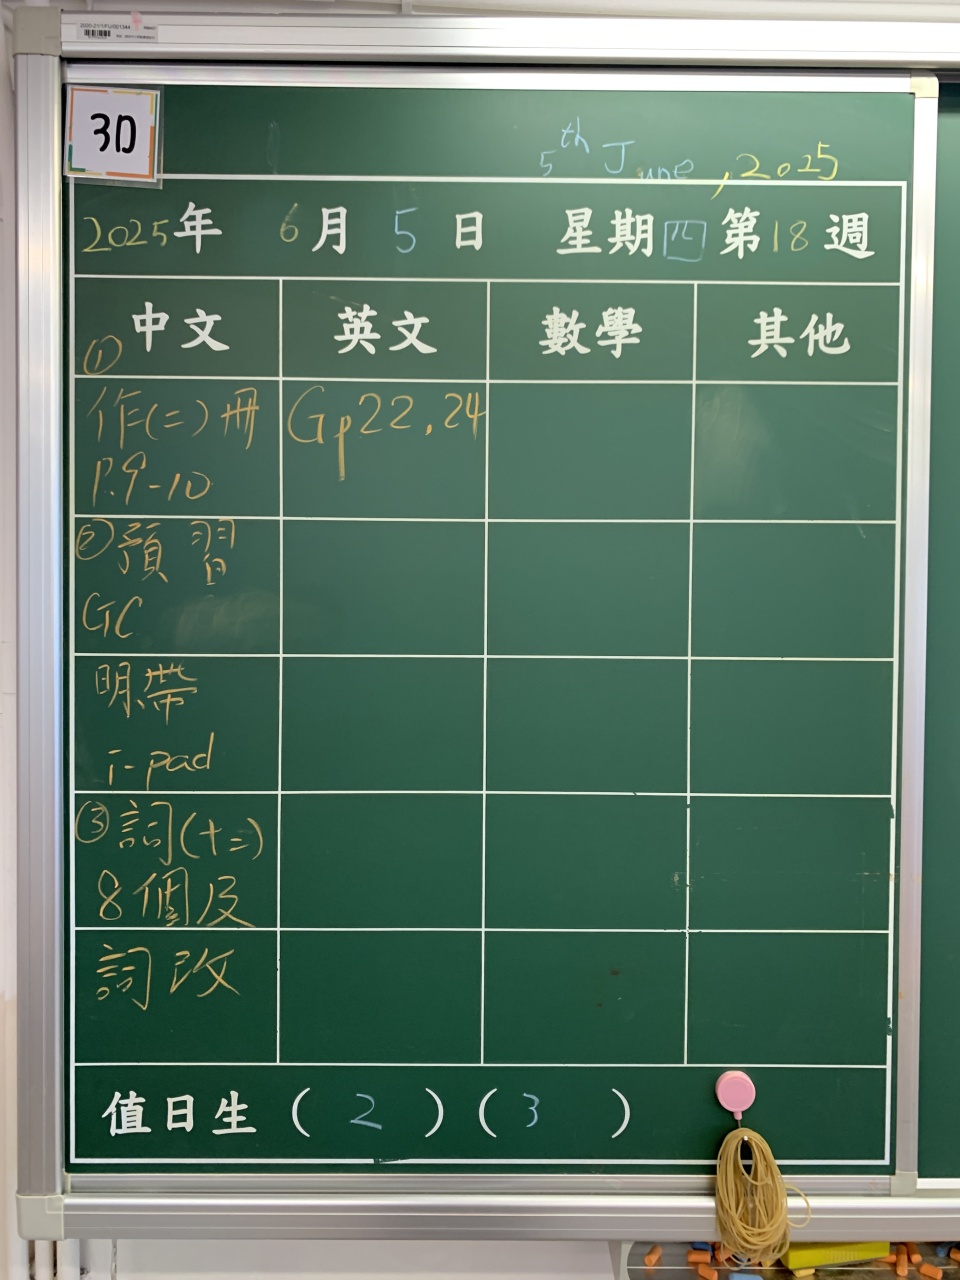 3D
5th June, 2025
2025年 6月 5日 星期四 第18週
中文 英文 數學 其他
①作(二)冊 Gp22.24
P.9-10
②預習
GC
明帶
i-pad
③詞(十二)
8個及
詞改
值日生 ( 2 ) ( 3 )